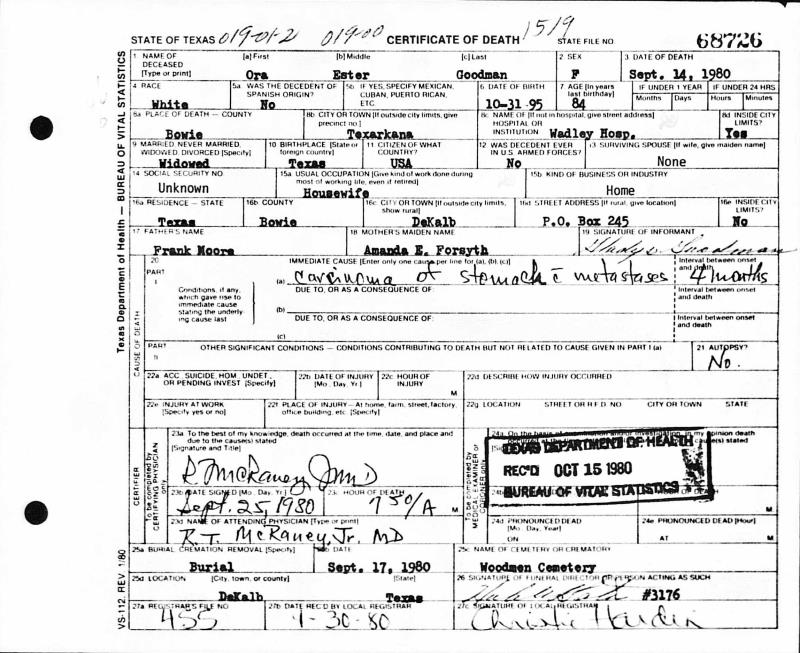 STATE OF TEXAS 019-01-2 019-00 CERTIFICATE OF DEATH 1519 STATE FILE NO. 68726
Texas Department of Health — BUREAU OF VITAL STATISTICS
VS-112, REV. 1/80
1 NAME OF DECEASED [Type or print] [a] First [b] Middle [c] Last 2 SEX 3 DATE OF DEATH
Ora Ester Goodman F Sept. 14, 1980
4 RACE 5a WAS THE DECEDENT OF SPANISH ORIGIN? 5b IF YES, SPECIFY MEXICAN, CUBAN, PUERTO RICAN, ETC. 6 DATE OF BIRTH 7 AGE [In years last birthday] IF UNDER 1 YEAR IF UNDER 24 HRS
Months Days Hours Minutes
White No 10-31-95 84
8a PLACE OF DEATH — COUNTY 8b CITY OR TOWN [If outside city limits, give precinct no.] 8c NAME OF [If not in hospital, give street address] HOSPITAL OR INSTITUTION 8d INSIDE CITY LIMITS?
Bowie Texarkana Wadley Hosp. Yes
9 MARRIED, NEVER MARRIED, WIDOWED, DIVORCED [Specify] 10 BIRTHPLACE [State or foreign country] 11 CITIZEN OF WHAT COUNTRY? 12 WAS DECEDENT EVER IN U.S. ARMED FORCES? 13 SURVIVING SPOUSE [If wife, give maiden name]
Widowed Texas USA No None
14 SOCIAL SECURITY NO. 15a USUAL OCCUPATION [Give kind of work done during most of working life, even if retired] 15b KIND OF BUSINESS OR INDUSTRY
Unknown Housewife Home
16a RESIDENCE — STATE 16b COUNTY 16c CITY OR TOWN [If outside city limits, show rural] 16d STREET ADDRESS [If rural, give location] 16e INSIDE CITY LIMITS?
Texas Bowie DeKalb P.O. Box 245 No
17 FATHER'S NAME 18 MOTHER'S MAIDEN NAME 19 SIGNATURE OF INFORMANT
Frank Moore Amanda E. Forsyth Goodman
CAUSE OF DEATH
20 PART I IMMEDIATE CAUSE [Enter only one cause per line for (a), (b), (c)] Interval between onset and death
(a) Carcinoma of stomach c̄ metastases 4 months
Conditions, if any, which gave rise to immediate cause stating the underlying cause last
DUE TO, OR AS A CONSEQUENCE OF: Interval between onset and death
(b)
DUE TO, OR AS A CONSEQUENCE OF: Interval between onset and death
(c)
PART II OTHER SIGNIFICANT CONDITIONS — CONDITIONS CONTRIBUTING TO DEATH BUT NOT RELATED TO CAUSE GIVEN IN PART I (a) 21 AUTOPSY?
No.
22a ACC, SUICIDE, HOM, UNDET., OR PENDING INVEST [Specify] 22b DATE OF INJURY [Mo., Day, Yr.] 22c HOUR OF INJURY M 22d DESCRIBE HOW INJURY OCCURRED
22e INJURY AT WORK [Specify yes or no] 22f PLACE OF INJURY — At home, farm, street, factory, office building, etc. [Specify] 22g LOCATION STREET OR R.F.D. NO. CITY OR TOWN STATE
CERTIFIER
To be completed by CERTIFYING PHYSICIAN only
23a To the best of my knowledge, death occurred at the time, date, and place and due to the cause(s) stated
[Signature and Title]
R McRaney Jr MD
23b DATE SIGNED [Mo., Day, Yr.] 23c HOUR OF DEATH
Sept. 25, 1980 750/A M
23d NAME OF ATTENDING PHYSICIAN [Type or print]
R.T. McRaney, Jr. MD
To be completed by MEDICAL EXAMINER or CORONER only
24a On the basis of examination and/or investigation, in my opinion death
TEXAS DEPARTMENT OF HEALTH
REC'D OCT 15 1980
BUREAU OF VITAL STATISTICS
M
24d PRONOUNCED DEAD [Mo., Day, Year] 24e PRONOUNCED DEAD [Hour]
ON AT M
25a BURIAL, CREMATION, REMOVAL [Specify] 25b DATE 25c NAME OF CEMETERY OR CREMATORY
Burial Sept. 17, 1980 Woodmen Cemetery
25d LOCATION [City, town, or county] [State] 26 SIGNATURE OF FUNERAL DIRECTOR OR PERSON ACTING AS SUCH
DeKalb Texas #3176
27a REGISTRAR'S FILE NO. 27b DATE REC'D BY LOCAL REGISTRAR 27c SIGNATURE OF LOCAL REGISTRAR
455 -30-80 Christie Hardin